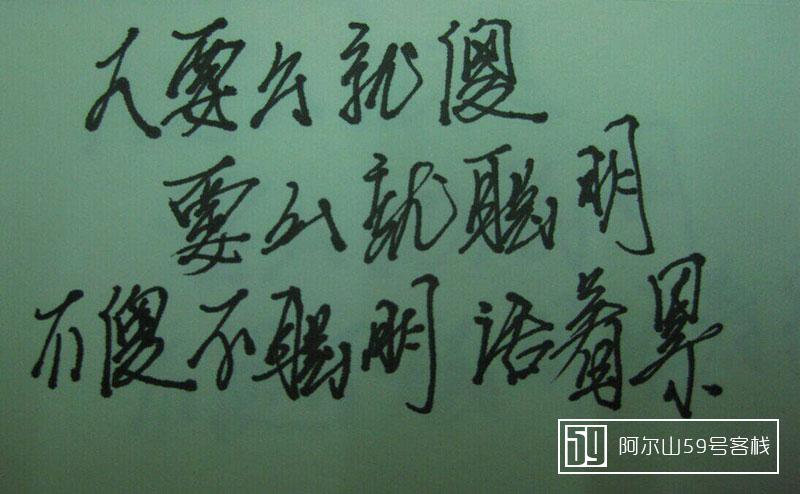 人要么就傻
要么就聪明
不傻不聪明 活着累
59 阿尔山59号客栈